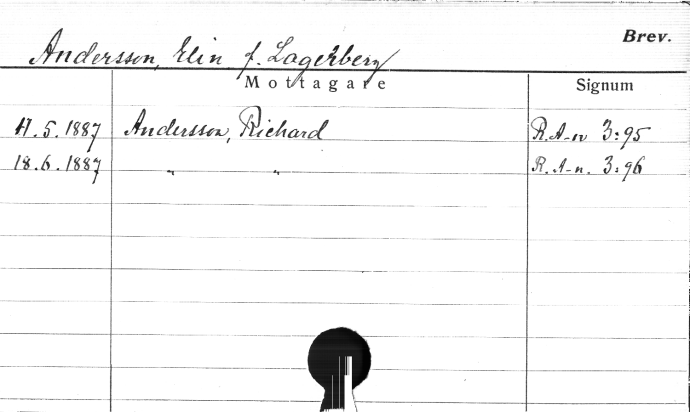 Brev.
Andersson, Elin f. Lagerberg
Mottagare Signum
17.5.1887 Andersson, Richard R. A-n 3:95
18.6.1887 " " R. A-n. 3:96